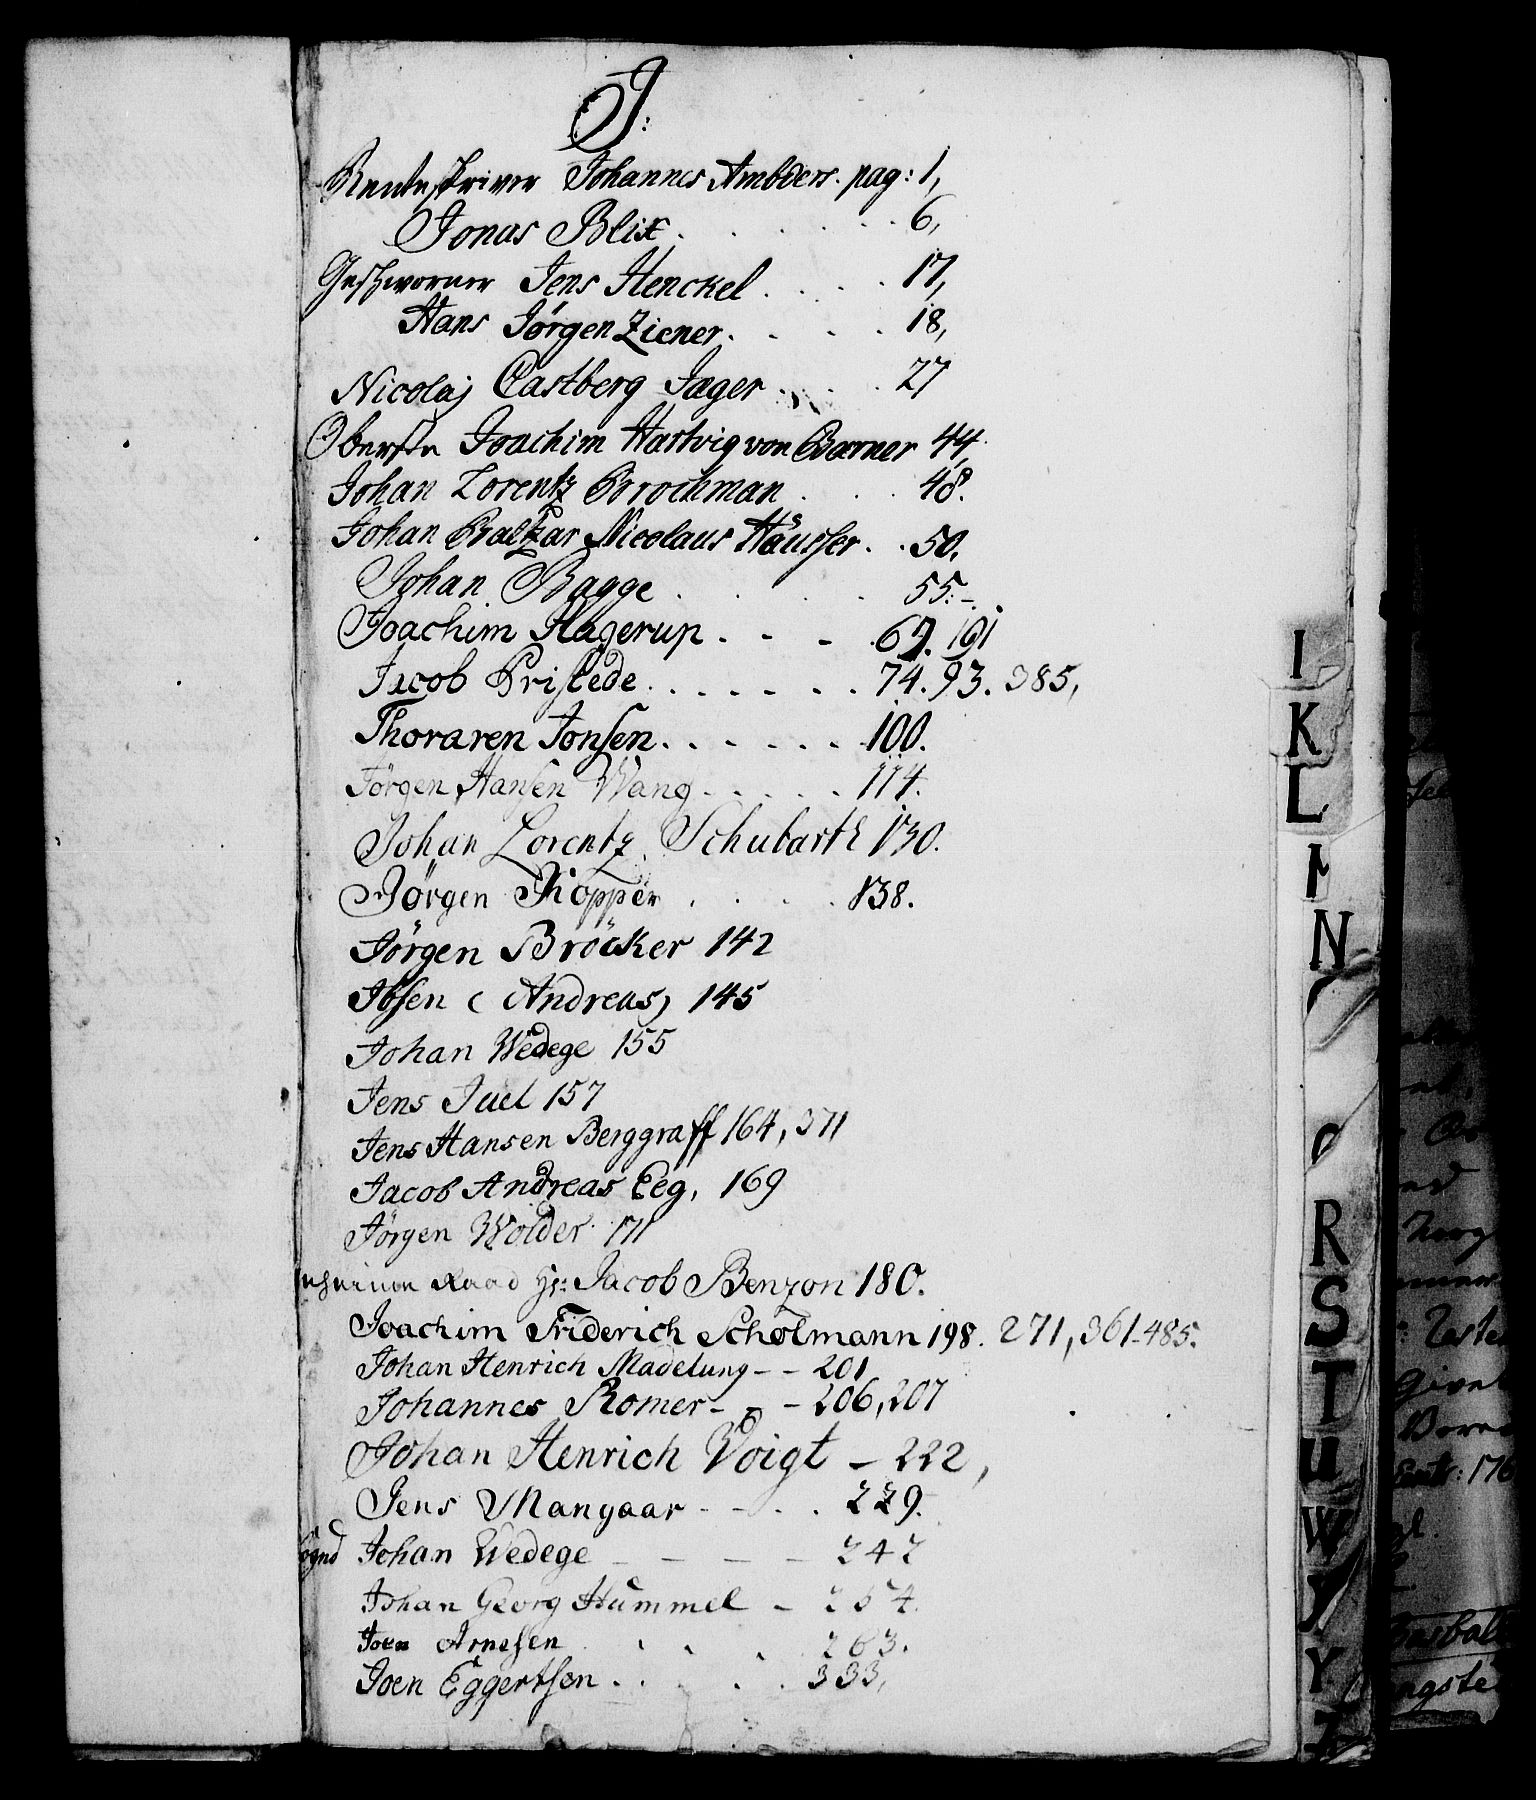 J:
Renteskriver Johannes Ambders. pag: 1,
Jonas Blix. . . . . . . 6,
Geschworner Jens Henckel . . . . 17,
Hans Jörgen Ziener. . . . 18,
Nicolaj Castberg Jæger . . . . 27
Oberste Joachim Hartvig von Barner 44,
Johan Lorentz Brochman . . . 48.
Johan Baltzar Nicolaus Häusser . . 50.
Johan Bagge . . . . 55.-
Joachim Hagerup . - - 67. 191
Jacob Pristede . . . . . . . 74. 93. 385,
Thoraren Jonsen . . . . . . 100.
Jörgen Hansen Wang . . . . . 114.
Johan Lorentz Schubarth 130.
Jörgen Kiopper . . . . 138.
Jörgen Bröcker 142
Ibsen (Andreas) 145
Johan Wedege 155
Jens Juel 157
Jens Hansen Berggraff 164, 371
Jacob Andreas Eeg, 169
Jörgen Wolder 171
Raad Hr: Jacob Benzon 180.
Joachim Friderich Scholmann 198. 271, 361-485.
Johan Henrich Madelung - - 201
Johannes Romer - - - 206, 207
Johan Henrich Voigt - 222,
Jens Mangaar - - . . 229.
Johan Wedege - - - - 242
Johan Georg Hummel - 254.
Joen Arnesen . . . . 263.
Joen Eggertsen . . . . 333,
I
K
L
N
R
S
T
U
W
Y
Z